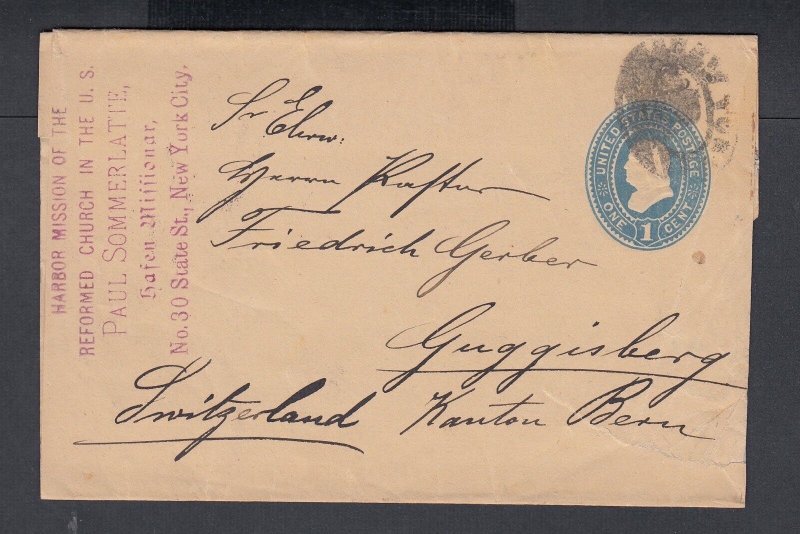 HARBOR MISSION OF THE
REFORMED CHURCH IN THE U. S.
PAUL SOMMERLATTE,
Hafen-Missionar,
No. 30 State St., New York City.
Sr Ehrw.
Herrn Pastor
Friedrich Gerber
Guggisberg
Kanton Bern
Switzerland
UNITED STATES POSTAGE
ONE 1 CENT